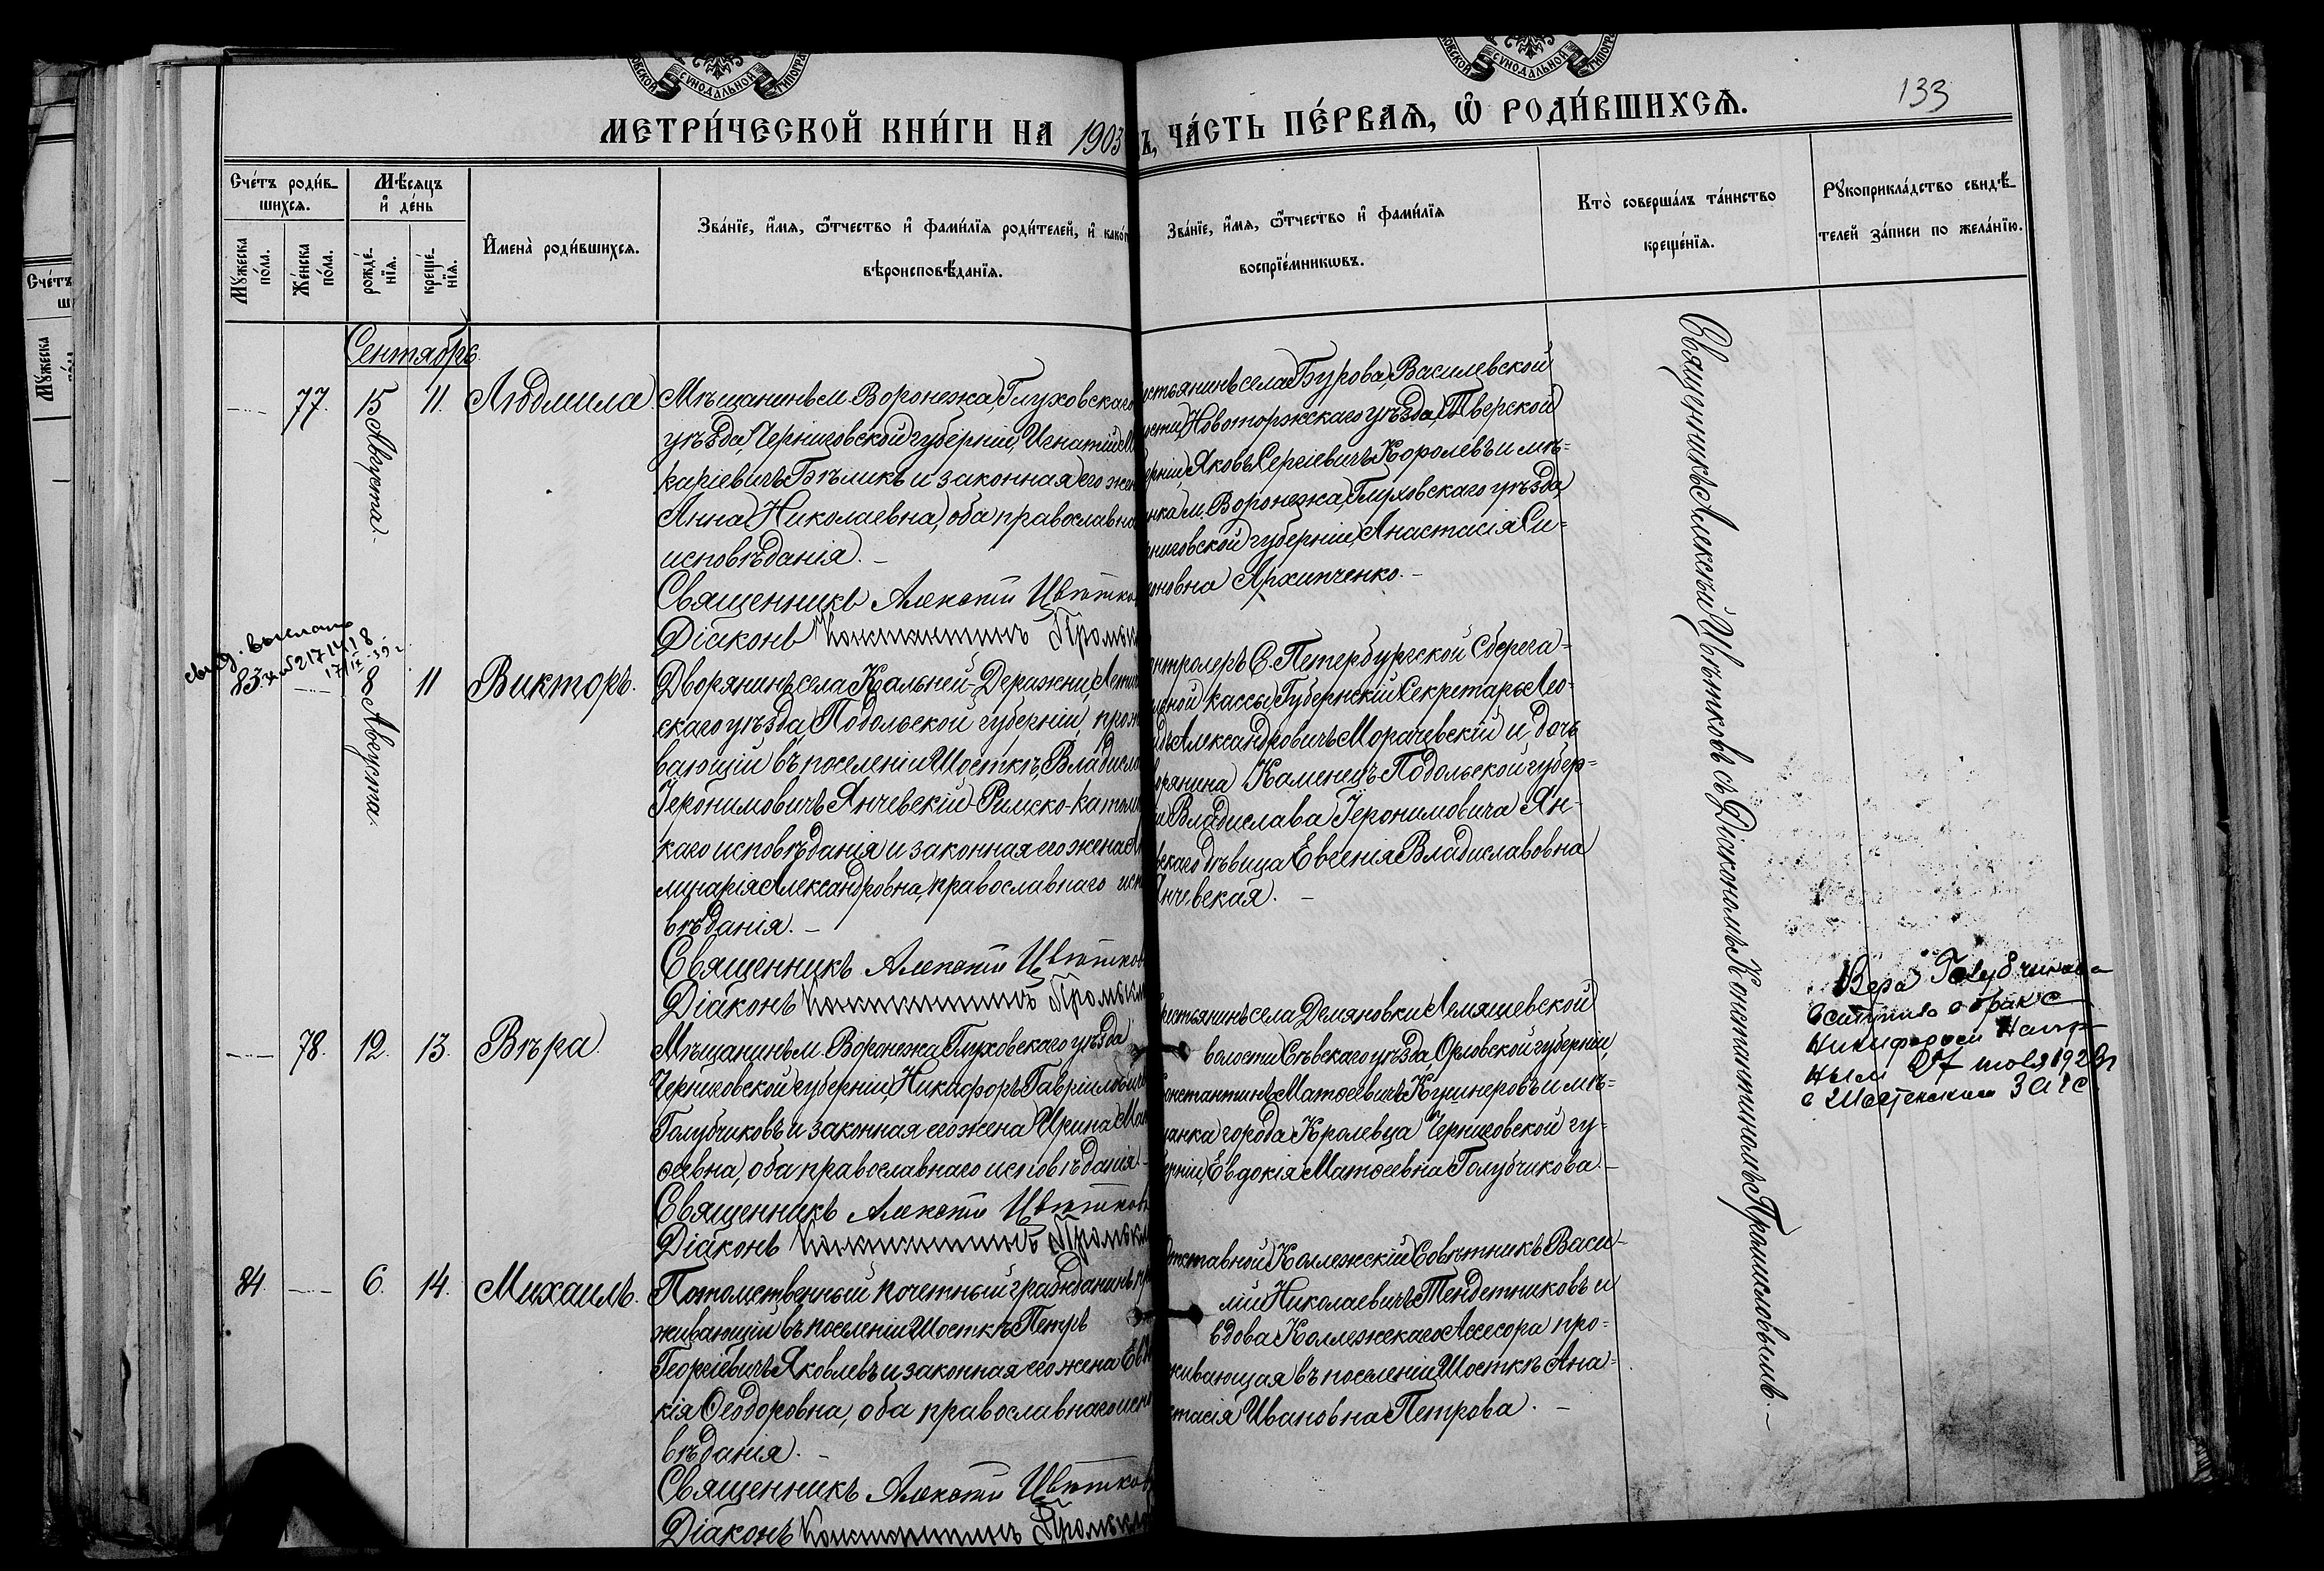 МЕТРИ́ЧЕСКОЙ КНИ́ГИ НА 1903
Ъ, ЧА́СТЬ ПЕ́РВАѦ, Ѡ РОДИ́ВШИХСѦ.
133
СУНОДАЛЬНОЙ
СУНОДАЛЬНОЙ
Сче́тъ роди́в-
шихся.
Мѣсяцъ
и де́нь
Му́жеска
по́ла.
Же́нска
по́ла.
рожде́-
нїя.
креще́-
нїя.
Имена̀ роди́вшихся.
Зва́нїе, и́мя, ѻ́тчество и фами́лїя роди́телей, и како́
вѣроисповѣ́данїя.
Зва́нїе, и́мя, ѻ́тчество и фами́лїя
воспрїе́мникωвъ.
Кто̀ соверша́лъ та́инство
креще́нїя.
Рукоприкла́дство свидѣ́-
телей за́писи по жела́нїю.
Сентябрь.
77. 15 Августа. 11. Людмила.
Мѣщанинъ м. Воронежа, Глуховскаго
уѣзда, Черниговской губерніи, Игнатій М
каріевичъ Бѣликъ и законная его жен
Анна Николаевна, оба православна
исповѣданія. –
Священникъ Алексѣй Цвѣтков
Діаконъ Константинъ Промысл
естьянинъ села Бурова, Василевской
ости, Новоторжскаго уѣзда, Тверской
ерніи, Яковъ Сергіевичъ Королевъ и мѣ-
нка м. Воронежа, Глуховскаго уѣзда,
рниговской губерніи, Анастасія Си-
оновна Архипченко. –
свид. выслано
83. 8 Августа. 11 Викторъ.
Дворянинъ села Кальней-Деражни, Летич
скаго уѣзда, Подольской губерніи, прож
вающій въ поселеніи Шосткѣ, Владисла
Іеронимовичъ Янчевскій Римско-католи
каго исповѣданія и законная его жена А
линарія Александровна, православнаго исп
вѣданія. –
Священникъ Алексѣй Цвѣтков
Діаконъ Константинъ Промысл
онтролеръ С.-Петербургской Сберега-
льной кассы Губернскій Секретарь Лео-
дъ Александровичъ Морачевскій и дочь
орянина Каменецъ Подольской губер-
и Владислава Іеронимовича Ян-
вскаго дѣвица Евгенія Владиславовна
Янчевская. –
78. 12. 13. Вѣра.
Мѣщанинъ м. Воронежа Глуховскаго уѣзда
Черниговской губерніи, Никифоръ Гавріиловичъ
Голубчиковъ и законная его жена Ирина Мат
ѳевна, оба православнаго исповѣданія –
Священникъ Алексѣй Цвѣтков
Діаконъ Константинъ Промысл
рестьянинъ села Демяновки Лемяшевской
волости Сѣвскаго уѣзда, Орловской губерніи,
онстантинъ Матѳеевичъ Кушнеровъ и мѣ-
анка города Кролевца Черниговской гу-
ерніи, Евдокія Матѳеевна Голубчикова. –
Вера Голубчикова
вступила в брак с
Никифором
ным 27 июля 192
в Шостенском ЗАГС
84. 6. 14. Михаилъ.
Потомственный почетный гражданинъ, пр
живающій въ поселеніи Шосткѣ Петръ
Георгіевичъ Яковлевъ и законная его жена Евд
кія Ѳеодоровна, оба православнаго испо
вѣданія. –
Священникъ Алексѣй Цвѣтков
Діаконъ Константинъ Промысл
тставной Коллежскій Совѣтникъ Васи-
лій Николаевичъ Тендетниковъ и
вдова Коллежскаго Ассесора про-
живающая въ поселеніи Шосткѣ Ана-
стасія Ивановна Петрова. –
Священникъ Алексѣй Цвѣтковъ съ Діакономъ Константиномъ Промысловымъ. –
Сче́тъ
Му́жеска